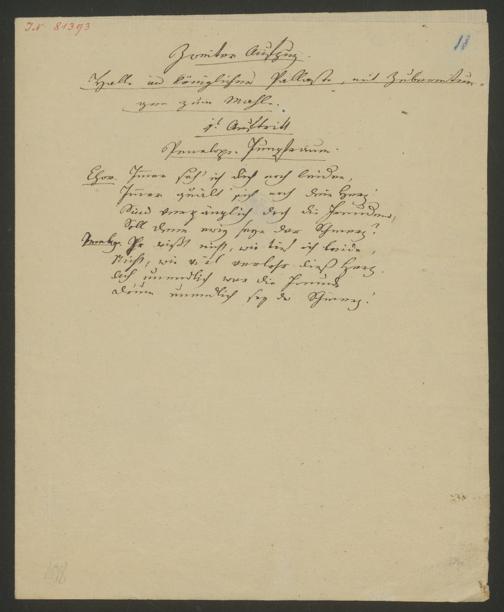 J.N. 81393
18
Zweiter Aufzug.
Halle im königlichen Pallaste, mit Zubereitun-
gen zum Mahle.
1t Auftritt
Penelope. Jungfrauen.
Chor. Immer seh' ich dich noch leiden,
Immer quält sich noch dein Herz!
Sind vergänglich doch die Freuden,
Soll denn ewig seyn der Schmerz?
Penelop. Ihr wißt nicht, wie tief ich leide,
Nicht, wie viel verlohr dieß Herz.
Doch unendlich war die Freude
Drum unendlich sey der Schmerz!